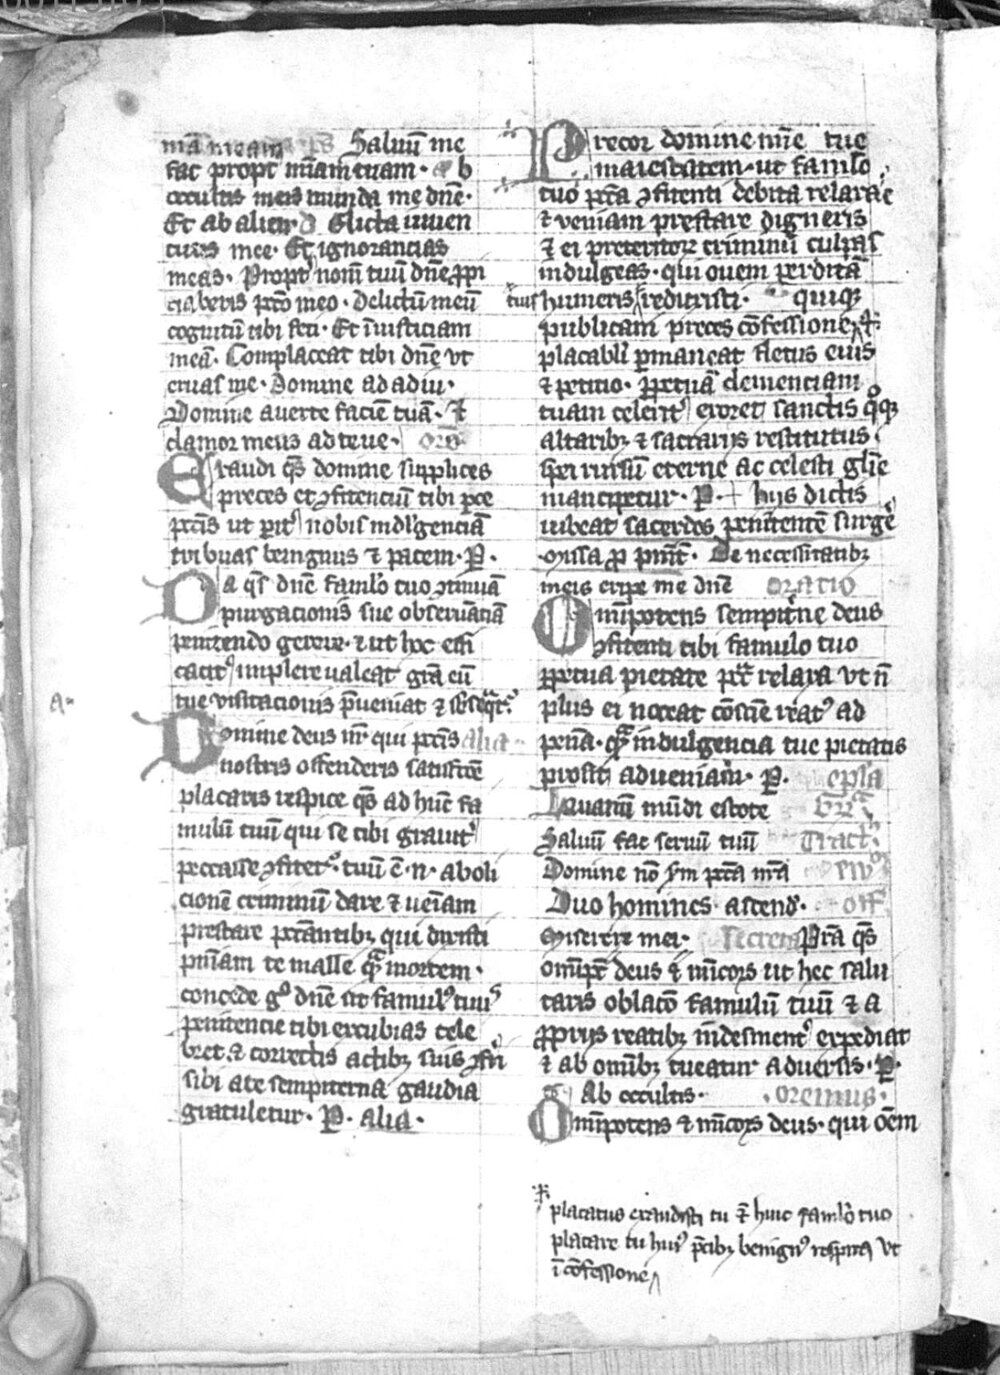 mā meam ps Saluū me
fac propt' mīam tuam · ab
occultis meis munda me dn̄e ·
Et ab alien Delicta iuuen
tutis mee · Et ignorancias
meas · Propt' nom̄ tuū dn̄e ꝓpi
ciaberis pctō meo · Delictū meū
cognitū tibi feci · Et iniusticiam
meā · Complaceat tibi dn̄e vt
eruas me · Domine ad adiu ·
Domine auerte faciē tuā · Et
clamor meus ad te ue · or̄o
Exaudi qs̄ domine supplices
preces et ꝯfitenciū tibi pce
pctīs ut pit' nobis indlgenciā
tribuas benignus ⁊ pacem · P ·
Da qs̄ dn̄e famlo tuo ꝯtinuā
purgacionis sue obseruāciā
penitendo gerere · ⁊ ut hoc effi
cacit' implere ualeat gr̄a eū
tue visitacionis p̄ueniat ⁊ sbseqt' ·
Domine deus nr̄ qui pctīs alia
nostris offenderis satisfctōe
placaris respice qs̄ ad hūc fa
mulū tuū qui se tibi grauit'
peccasse ꝯfitet' · tuū ē · n · aboli
cionē criminū dare ⁊ ueīam
prestare pctāntibꝫ qui dixisti
pnīam te malle qͣ mortem ·
concede gͦ dn̄e sit famul' tuus
penitencie tibi excubias cele
bret · ⁊ correctis actibꝫ suis ꝯf̄ri
sibi a te sempiterna gaudia
gratuletur · P · alia ·
Precor domine mīe tue
maiestatem · ut famlo
tuo pctā ꝯfitenti debita relaxare
⁊ veniam prestare digneris
⁊ ei preteritoꝝ criminū culpas
indulgeas · qui ouem perditā
tuis humeris reduxisti · quiqꝫ
publicani preces cōfessione
placabil' pmaneat fletus eius
⁊ petitio · ꝑpetuā clemenciam
tuam celerit' exoret sanctis qͦqꝫ
altaribꝫ ⁊ sacrarijs restitutus
spei rursū eterne ac celesti glīe
mancipetur · P · hijs dictis
iubeat sacerdos penitentē surge
missa ꝓ pnīt · De necessitatibꝫ
meis eripe me dn̄e oratio
Om̄ipotens sempitne deus
ꝯfitenti tibi famulo tuo
ꝑpetua pietate pctā relaxa vt n̄
plus ei noceat cōscie reat' ad
penā · qͣ indulgencia tue pietatis
prosit ad ueniam · P · epl̄a
Lauamī mūdi estote Gr̄a
Saluū fac seruū tuū Tract'
Domine nō s̄m pctā nr̄a ew̄
Duo homines ascend' · off
Miserere mei · secreta Pr̄a qs̄
om̄ipt deus ⁊ mīcors ut hec salu
taris oblacō famulū tuū ⁊ a
ꝓprijs reatibꝫ indesinent' expediat
⁊ ab om̄ibꝫ tueatur aduersis · P ·
Ab occultis · oremus ·
Om̄ipotens ⁊ mīcors deus · qui oēm
placatus exaudisti tu ⁊ huic famlo tuo
placare tu hui' p̄cibꝫ benign' respira vt
ī cōfessione
A